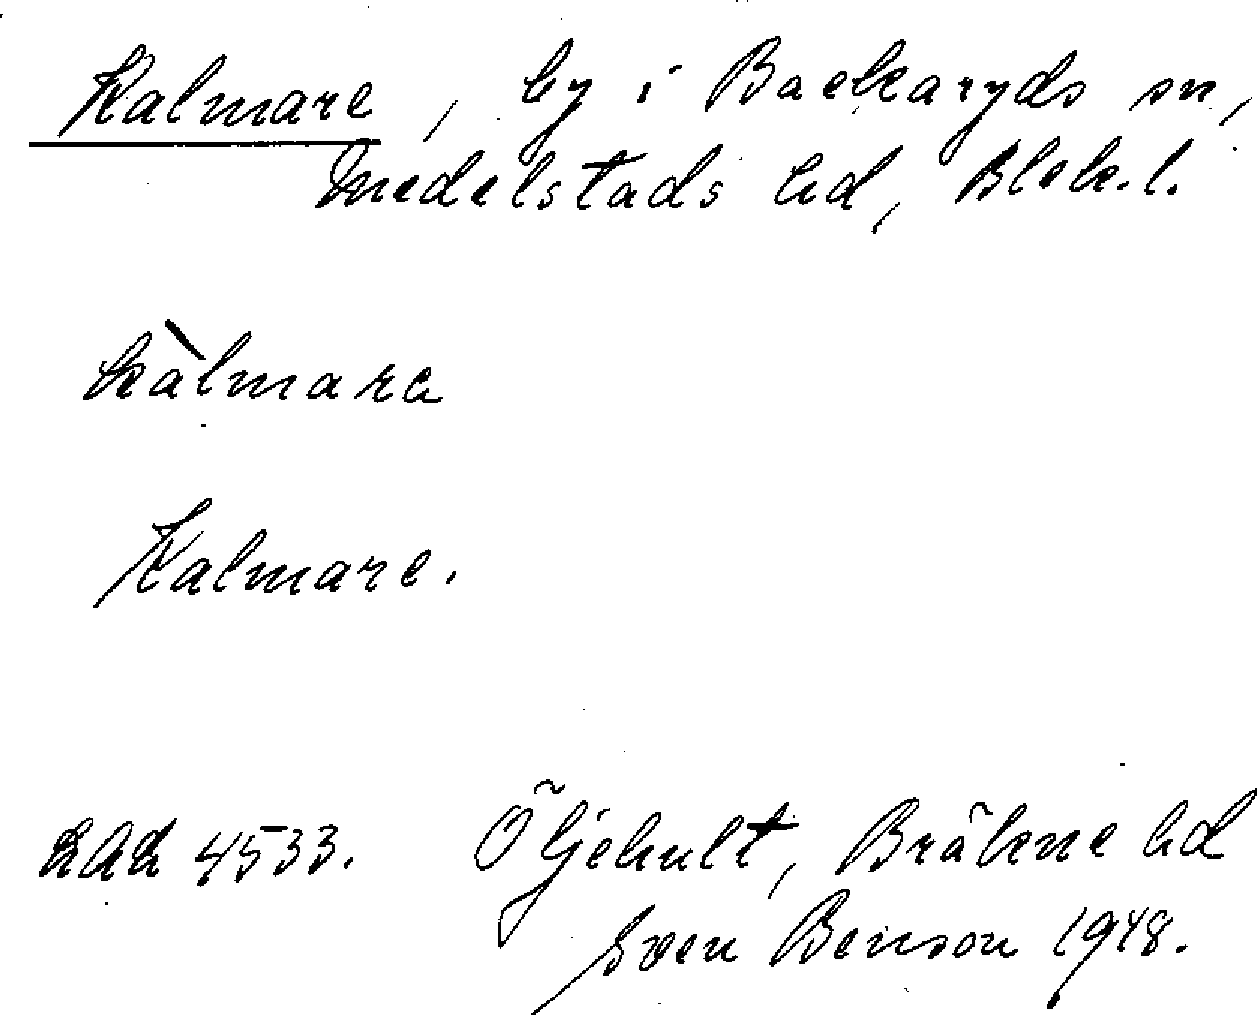 Kalmare, by i Backaryds sn,
Medelstads hd, Blek. l.
kàlmara
Kalmare.
LAL 4533. Öljehult, Bräkne hd
Sven Benson 1948.